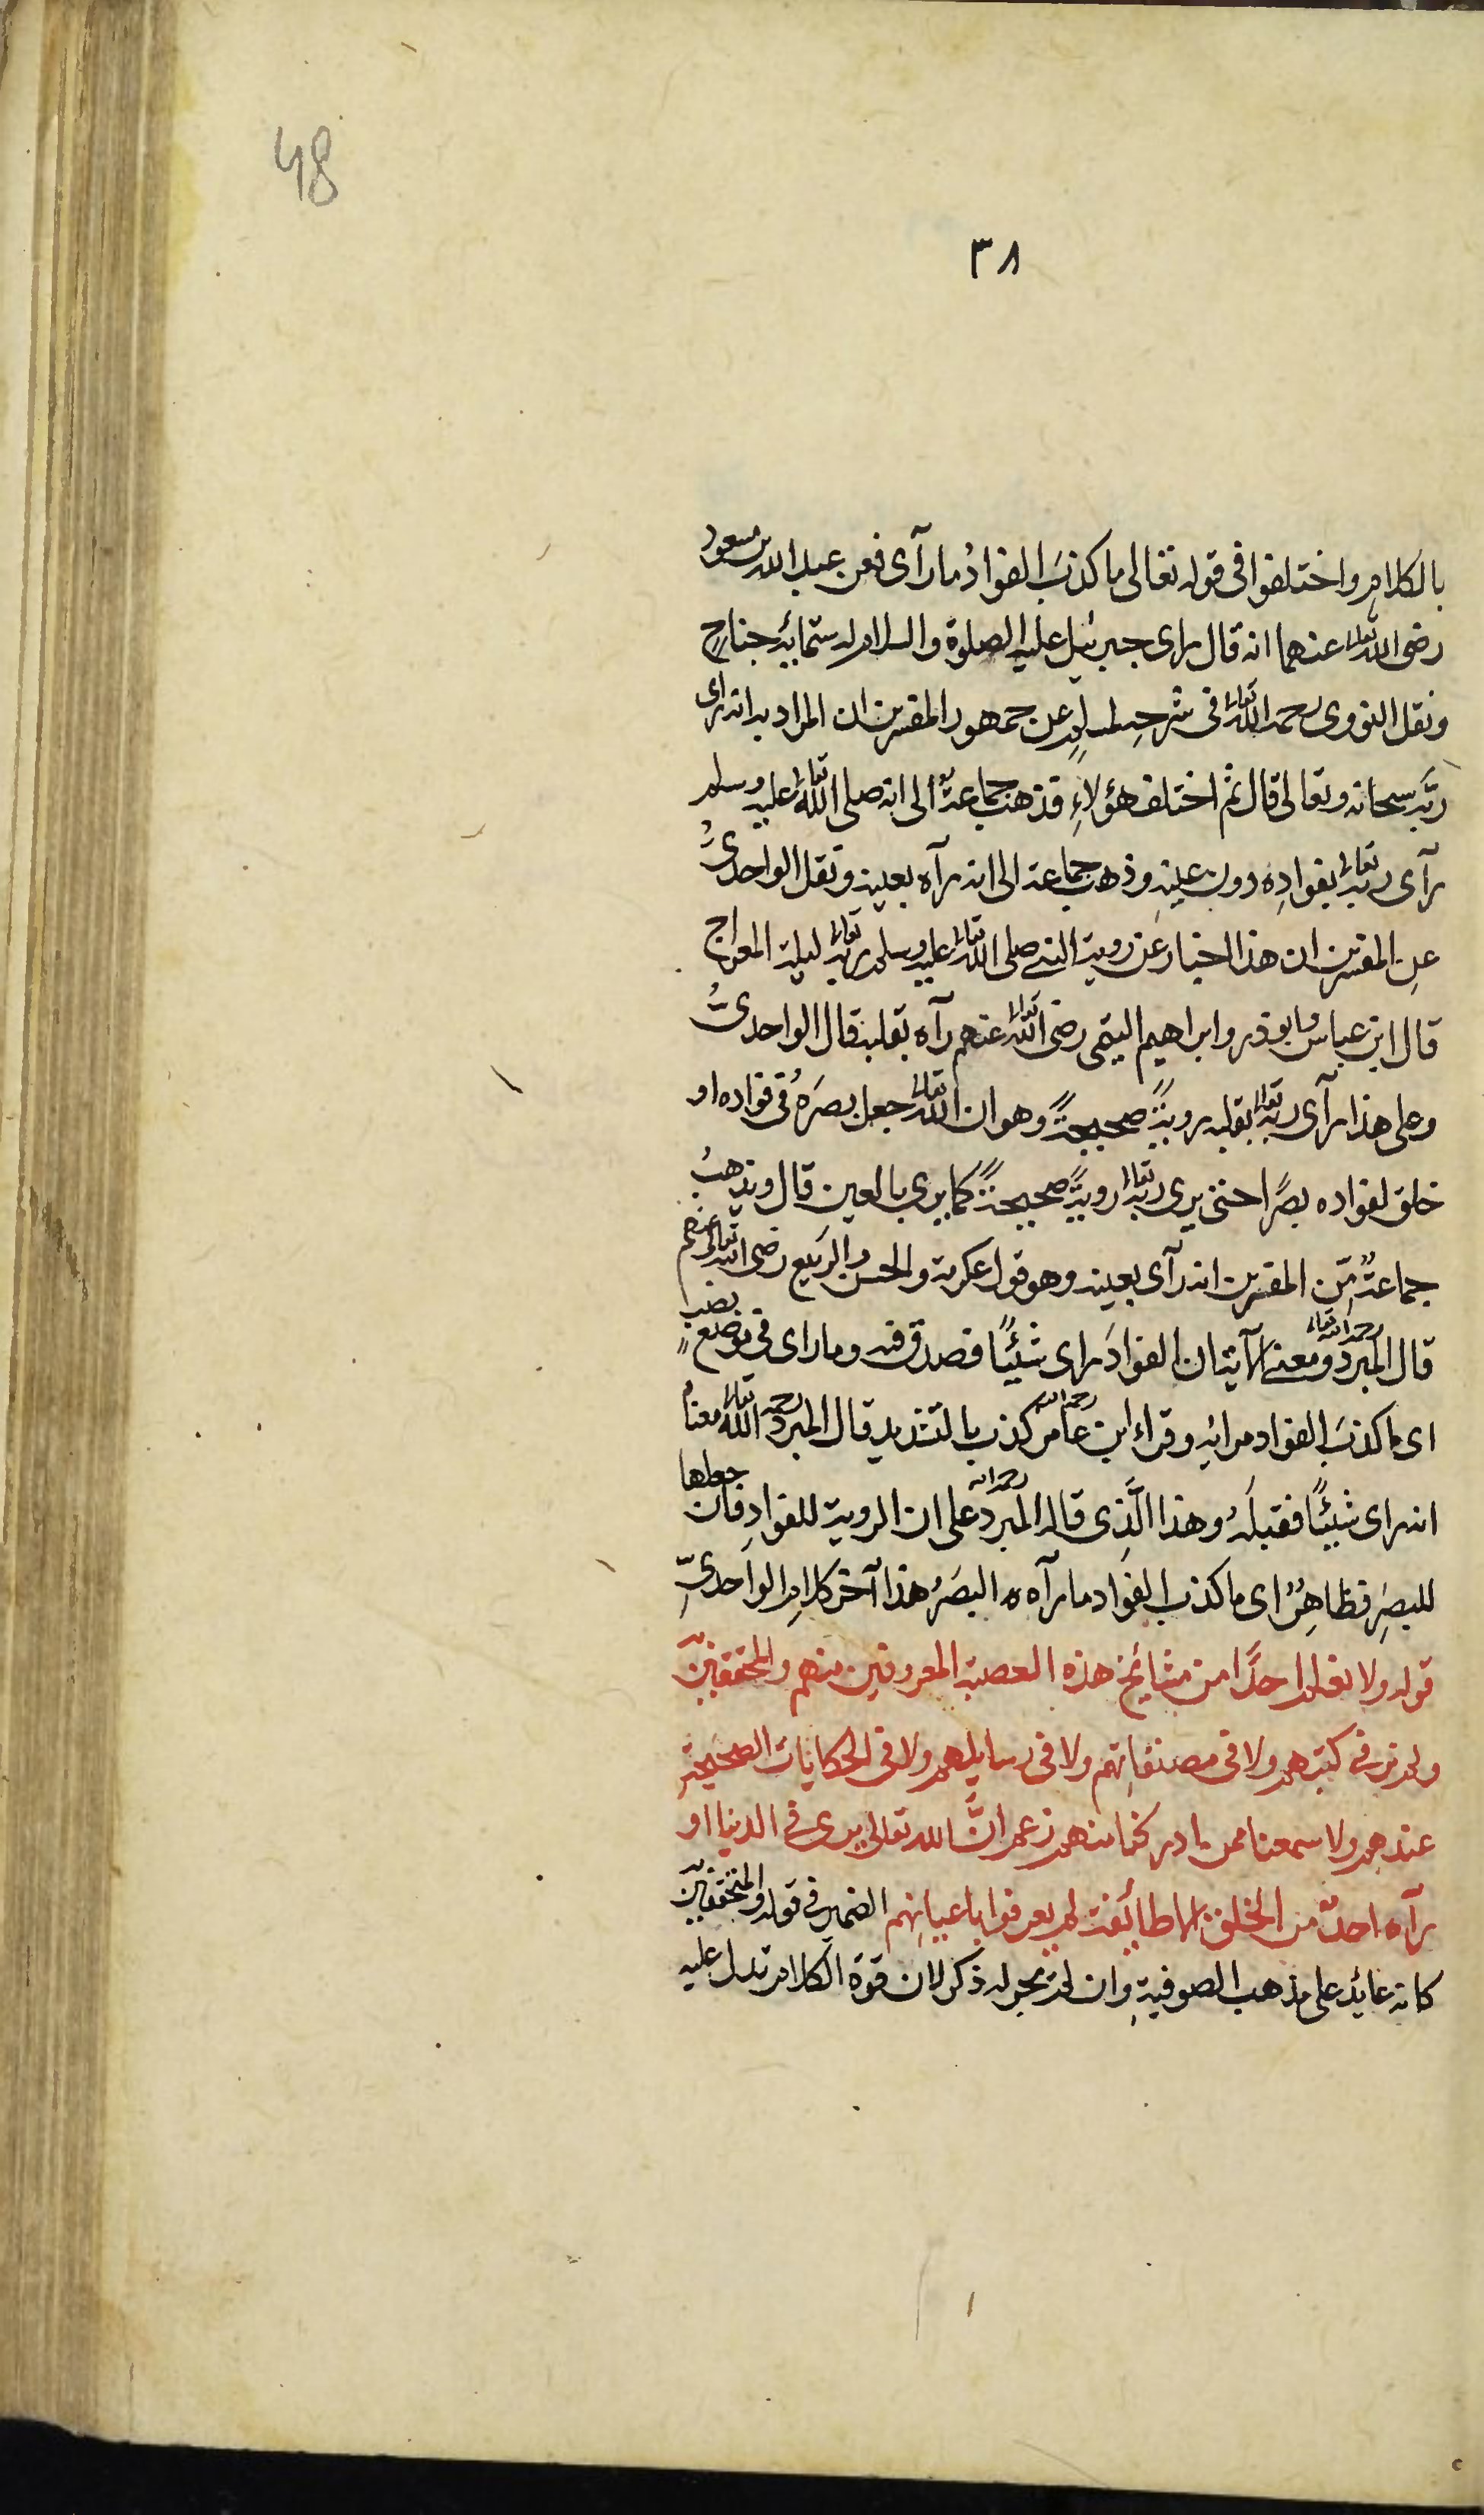 48
٣٨
بالكلامِ واختلفوا فى قوله تعالى ما كذبَ الفوادُ ما رآى فعن عبد الله بن مسعود
رضى الله تعالى عنهما انه قال راى جبرئيل عليه الصلوة والسلام له ستمائة جناحٍ
ونقل النووى رحمه الله تعالى فى شرحِ مسلمٍ عن جمهور المفسرين ان المراد به انه راى
ربَّه سبحانه وتعالى قال ثم اختلف هؤلاءِ فذهب جماعةٌ الى انه صلى الله تعالى عليه وسلم
رآى ربه تعالى بفوادِه دون عينِه وذهب جماعة الى انه رآه بعينه ونقل الواحدىُّ
عنِ المفسرين ان هذا اخبار عن روية النبى صلى الله تعالى عليه وسلم ربه تعالى ليلة المعراج
قال ابن عباس وابو ذر وابراهيم التيمى رضى الله تعالى عنهم رآه بقلبه قال الواحدىُّ
وعلى هذا رآى ربه تعالى بقلبه رويةً صحيحةً وهو ان الله تعالى جعل بصرَهُ فى فواده او
خلق لفواده بصرًا حتى يرى ربه تعالى رويةً صحيحةً كما يرى بالعين قال ويذهبُ
جماعةٌ مّن المفسرين انه رآى بعينه وهو قول عكرمة والحسن والربيع رضى الله تعالى عنهم
قال المبرد رحمه الله تعالى ومعنى الآية ان الفوادَ راى شيئًا فصدق فيه وما راى فى موضع نصب
اى ما كذبَ الفواد مرائيه وقراء ابن عامر رحمه الله كذب بالتشديد قال المبرد رحمه الله تعالى معناه
انه راى شيئًا فقبلَه وهذا الَّذى قاله المبرد رحمه الله على ان الروية للفوادِ فان جعلها
للبصرِ فظاهِرٌ اى ما كذب الفواد ما رآه البصَرُ هذا آخر كلام الواحدىِّ
قوله ولا نعلم احدًا من مشائخ هذه العصبة المعروفين منهم والمحققينّ
ولم نر فى كتبهم ولا فى مصنفاتِهم ولا فى رسايلهم ولا فى الحكايات الصحيحةِ
عندهم ولا سمعنا ممن ادركنا منهم زعم انَّ الله تعالى يرى فى الدنيا او
رآه احدٌ من الخلق الا طائفة لم يعرفوا باعيانِهم الضمير فى قوله والمتحققين
كانه عائد على مذهب الصوفيةِ وان لم يجر له ذكر لان قوة الكلام تدل عليه